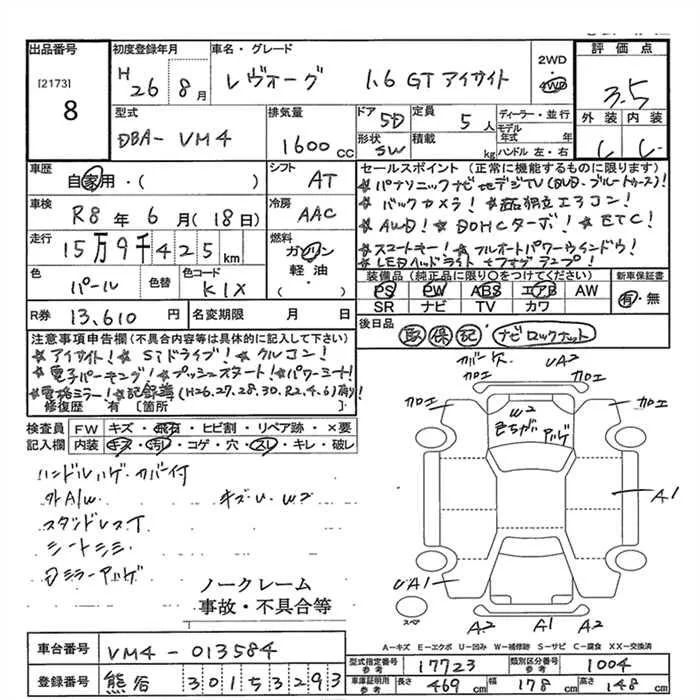 出品番号
[2173]
8
初度登録年月
H 26 8月
車名・グレード
レヴォーグ 1.6 GT アイサイト
2WD
4WD
評価点
3.5
外装 内装
C C
型式
DBA- VM4
排気量
1600 CC
ドア
5D
形状
SW
定員
5人
積載
kg
ディーラー・並行
モデル年式 年
ハンドル 左・右
車歴
自家用・( )
シフト
AT
車検
R8年6月(18日)
冷房
AAC
走行
15万9千425km
燃料
ガソリン
軽油
色
パール
色替
色コード
K1X
R券
13,610円
名変期限 月 日
セールスポイント (正常に機能するものに限ります)
★パナソニックナビ地デジTV(DVD、ブルートゥース)!
★バックカメラ!★左右独立エアコン!
★AWD!★DOHCターボ!★ETC!
★スマートキー!★フルオートパワーウインドウ!
★LEDヘッドライト ★フォグランプ!
装備品 (純正品に限り○をつけてください)
PS PW ABS エアB AW
SR ナビ TV カワ
新車保証書
有・無
後日品
取 保 記・ナビロックナット
注意事項申告欄(不具合内容等は具体的に記入して下さい)
★アイサイト!★SIドライブ!★クルコン!
★電子パーキング!★プッシュスタート!★パワーシート!
★電格ミラー!★記録簿(H26.27.28.30.R2.4.6)有り!
修復歴 有 [箇所 ]
検査員
記入欄
FW キズ・飛石・ヒビ割・リペア跡・×要
内装 キズ・汚レ・コゲ・穴・スレ・キレ・破レ
ハンドルハゲ カバー付
外A/W キズU W2
スタッドレスT
シートシミ
Dミラーアゲ
ノークレーム
事故・不具合等
カバー欠 UA2
カロエ カロエ
カロエ カロエ
W2
色ちがい アゲ
A1
UA1
スペア
A2 A1 A2
A-キズ E-エクボ U-凹み W-補修跡 S-サビ C-腐食 XX-交換済
車台番号
VM4-013584
登録番号
熊谷 301 そ 3293
型式指定番号
参考
17723
類別区分番号
参考
1004
車庫証明用
参考
長さ 469cm 幅 178cm 高さ 148cm